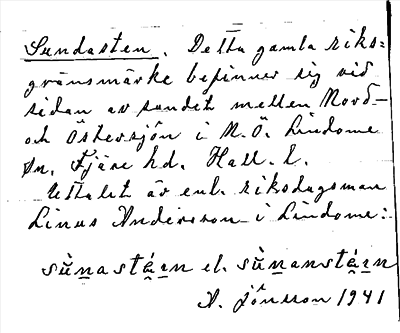 Sundasten. Detta gamla riks=
gränsmärke befinner sig vid
sidan av sundet mellan Nord-
och Östersjön i N.Ö. Lindome
sn, Fjäre hd. Hall. l.
Uttalet är enl. riksdagsman
Linus Andersson i Lindome:
sùnastén el. sùnanstén
A. Jönsson 1941